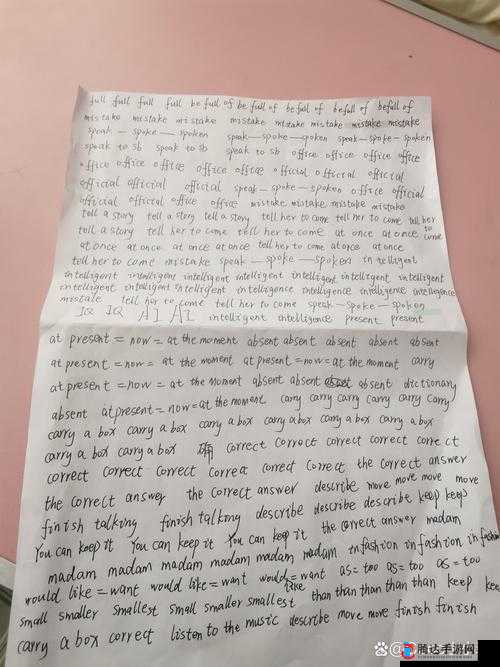 full full full full be full of be full of be full of befall of befall of
mistake mistake mistake mistake mistake mistake mistake mistake
speak — spoke — spoken speak—spoke—spoken speak—spoke—spoken
speak to sb speak to sb speak to sb office office office office
office office office office office office official official official
official official official speak—spoke—spoken office office
official official office office mistake mistake, mistake mistake
tell a story tell a story tell a story tell her to come tell her to come tell her
tell a story tell her to come tell her to come at once at once to come
at once at once at once at once tell her to come at once at once
tell her to come mistake speak—spoke—spoken intelligent
intelligent intelligent intelligent intelligent intelligent intelligent intelligent
intelligent intelligent intelligent intelligence intelligence intelligence
mistake tell her to come tell her to come speak—spoke—spoken
IQ IQ AI AI intelligent intelligence present present
at present = now = at the moment absent absent absent absent absent
at present = now = at the moment at present = now = at the moment carry
at present = now = at the moment absent absent absent dictionary
absent at present = now = at the moment carry carry carry carry carry carry
carry a box carry a box carry a box carry a box carry a box carry a box
carry a box carry a box 确 correct correct correct correct correct
correct correct correct correct correct correct the correct answer
the correct answer the correct answer describe move move move move
finish talking finish talking describe describe describe keep keep
You can keep it You can keep it You can keep it the correct answer madam
madam madam madam madam madam madam in fashion in fashion in fashion
would like = want would like = want would like = want as = too as = too as = too
small smaller smallest small smaller smallest than than than than than keep
carry a box correct listen to the music describe move move finish finish
腾达手游网